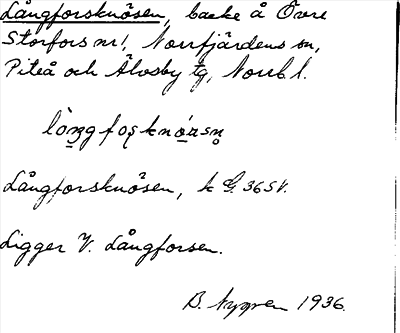 Långforsknösen, backe å Övre
Storfors nr 1, Norrfjärdens sn,
Piteå och Älvsby tg, Norrb l.
Långforsknösen, k G. 36 SV.
Ligger V. Långforsen.
B. Nygren 1936.